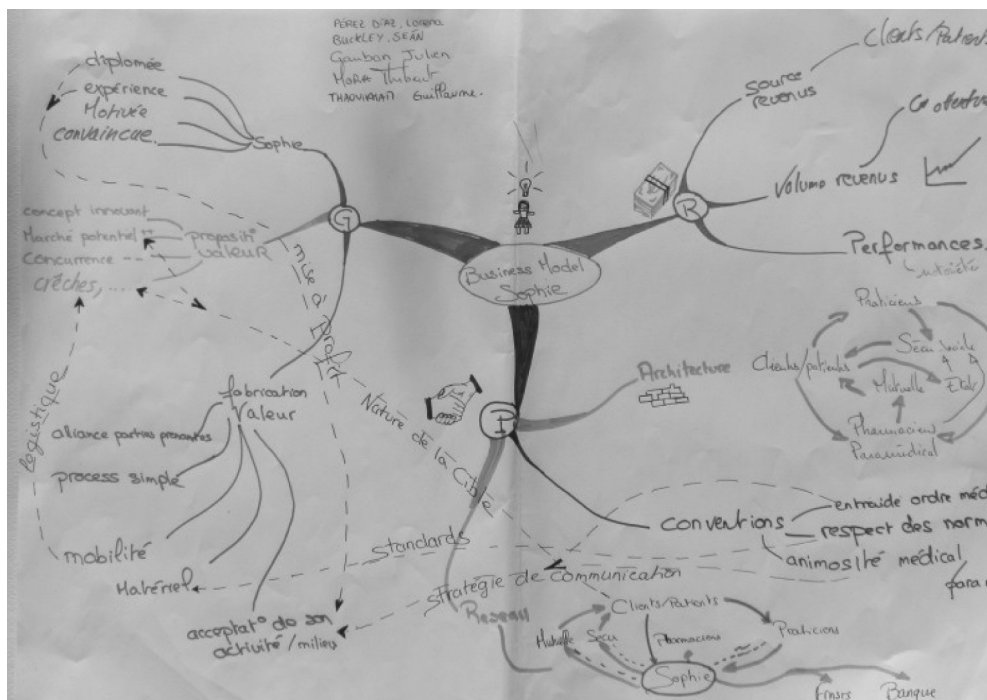 PÉREZ DÍAZ, Lorena
BUCKLEY, SEÁN
Julien
MORA Thibaut
Guillaume.
diplomée
expérience
Motivée
convaincue.
Sophie
G
concept innovant
Marché potentiel ++
concurrence --
crêches, ....
propositi°
valeur
mise à profit
Nature de la Cible
logistique
fabrication
Valeur
alliance parties prenantes
process simple
mobilité
Matériel
acceptat° de son
activité / milieu
Business Model
Sophie
R
source
revenus
Clients/Patients
Volume revenus
Performances.
notoriété
Praticiens
Clients/patients
Sécu. sociale
Mutuelle
Etat
Pharmaciens
Paramédical
P
Architecture
conventions
entraide ordre méd
respect des norm
animosité médical
para
standards
stratégie de communication
Reseau
Clients/Patients
Mutuelle
Sécu
Pharmaciens
Praticiens
Sophie
Frnsrs
Banque